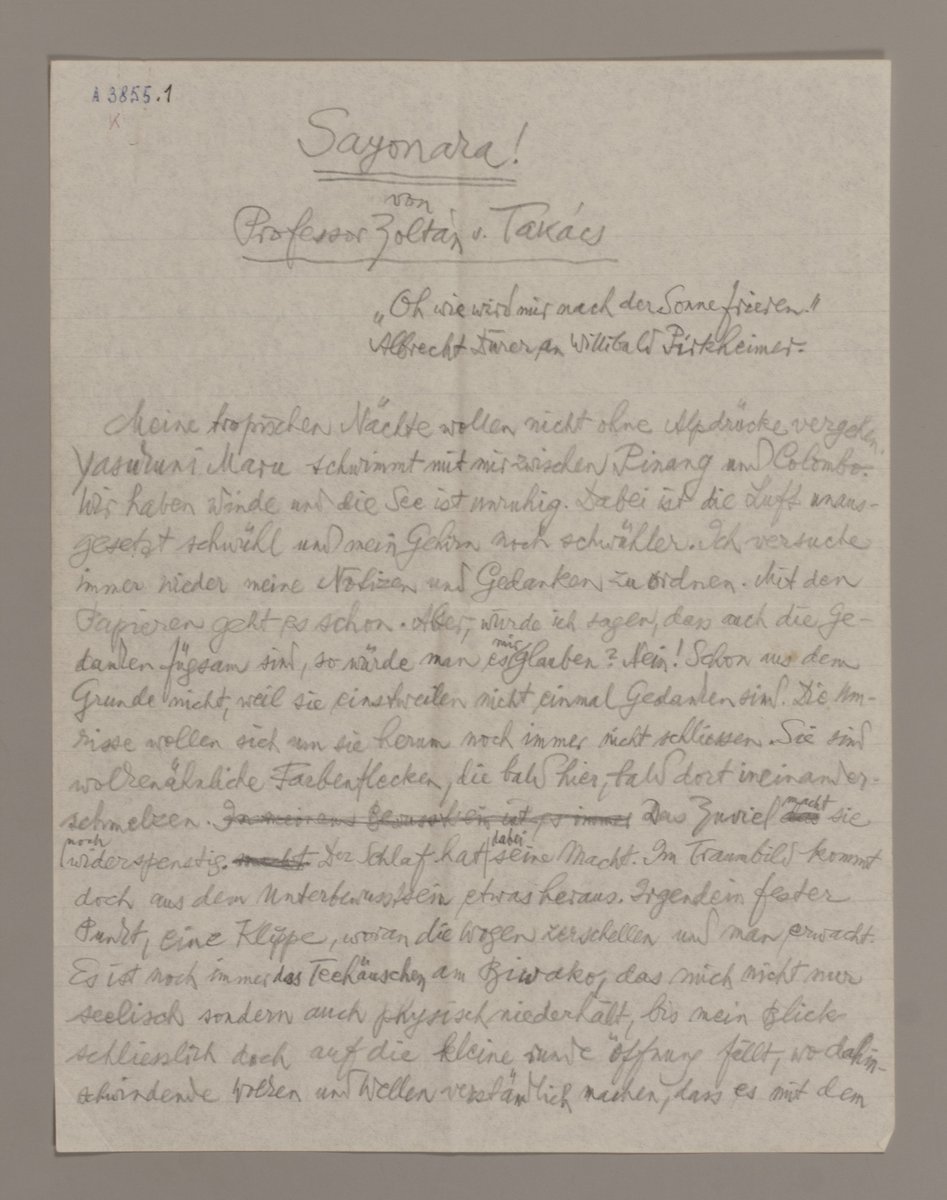 A 3855.1
Sayonara!
von
Professor Zoltán v. Takács
„Oh wie wird mir nach der Sonne frieren."
Albrecht Dürer an Willibald Pirkheimer.
Meine tropischen Nächte wollen nicht ohne Alpdrücke vergehen.
Yasukuni Maru schwimmt mit mir zwischen Pinang und Colombo.
Wir haben Winde und die See ist unruhig. Dabei ist die Luft unaus-
gesetzt schwühl und mein Gehirn noch schwühler. Ich versuche
immer wieder meine Notizen und Gedanken zu ordnen. Mit den
Papieren geht es schon. Aber, würde ich sagen, dass auch die Ge-
danken fügsam sind, so würde man es mir glauben? Nein! Schon aus dem
Grunde nicht, weil sie einstweilen nicht einmal Gedanken sind. Die Um-
risse wollen sich um sie herum noch immer nicht schliessen. Sie sind
wolkenähnliche Farbenflecken, die bald hier, bald dort ineinander-
schmelzen. In meinem Bewusstsein ist es immer Das Zuviel macht sie
noch widerspenstig. macht. Der Schlaf hat dabei seine Macht. Im Traumbild kommt
doch aus dem Unterbewusstsein etwas heraus. Irgendein fester
Punkt, eine Klippe, woran die Wogen zerschellen und man erwacht.
Es ist noch immer das Teehäuschen am Biwako, das mich nicht nur
seelisch sondern auch physisch niederhält, bis mein Blick
schliesslich doch auf die kleine runde Öffnung fällt, wo dahin-
schwindende Wolken und Wellen verständlich machen, dass es mit dem